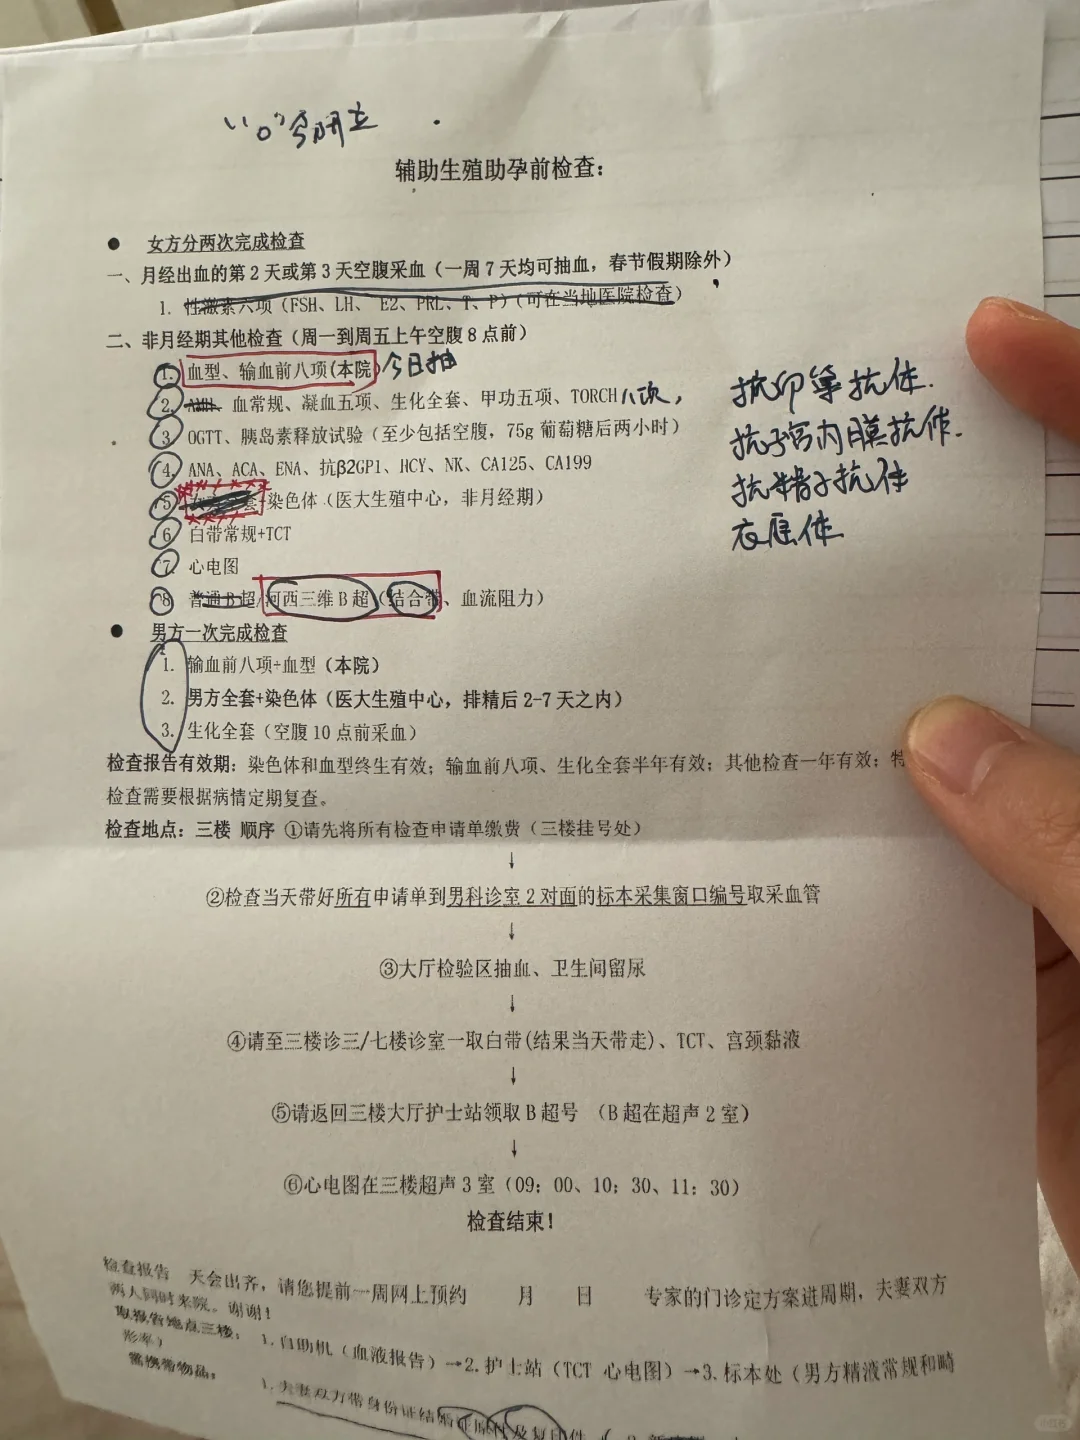 "0"今日开立
辅助生殖助孕前检查:
● 女方分两次完成检查
一、月经出血的第2天或第3天空腹采血（一周7天均可抽血，春节假期除外）
1. 性激素六项（FSH、LH、 E2、PRL、T、P）（可在当地医院检查）
二、非月经期其他检查（周一到周五上午空腹8点前）
1. 血型、输血前八项(本院) 今日抽
2. AMH、血常规、凝血五项、生化全套、甲功五项、TORCH八项,
3. OGTT、胰岛素释放试验（至少包括空腹，75g 葡萄糖后两小时）
4. ANA、ACA、ENA、抗β2GP1、HCY、NK、CA125、CA199
5. 女方全套+染色体（医大生殖中心，非月经期）
6. 白带常规+TCT
7. 心电图
8. 普通B超/河西三维B超（结合带、血流阻力）
抗卵巢抗体.
抗子宫内膜抗体.
抗精子抗体
衣原体
● 男方一次完成检查
1. 输血前八项+血型（本院）
2. 男方全套+染色体（医大生殖中心，排精后2-7天之内）
3. 生化全套（空腹10点前采血）
检查报告有效期：染色体和血型终生有效；输血前八项、生化全套半年有效；其他检查一年有效；特
检查需要根据病情定期复查。
检查地点：三楼 顺序 ①请先将所有检查申请单缴费（三楼挂号处）
↓
②检查当天带好所有申请单到男科诊室2对面的标本采集窗口编号取采血管
↓
③大厅检验区抽血、卫生间留尿
↓
④请至三楼诊三/七楼诊室一取白带(结果当天带走)、TCT、宫颈黏液
↓
⑤请返回三楼大厅护士站领取B超号 （B超在超声2室）
↓
⑥心电图在三楼超声3室（09：00、10；30、11：30）
检查结束！
检查报告 天会出齐，请您提前一周网上预约 月 日 专家的门诊定方案进周期，夫妻双方
两人同时来院。谢谢！
取报告地点三楼： 1.自助机（血液报告）→2.护士站（TCT 心电图）→3.标本处（男方精液常规和畸
形率）
需携带物品： 1.夫妻双方带身份证结婚证原件及复印件